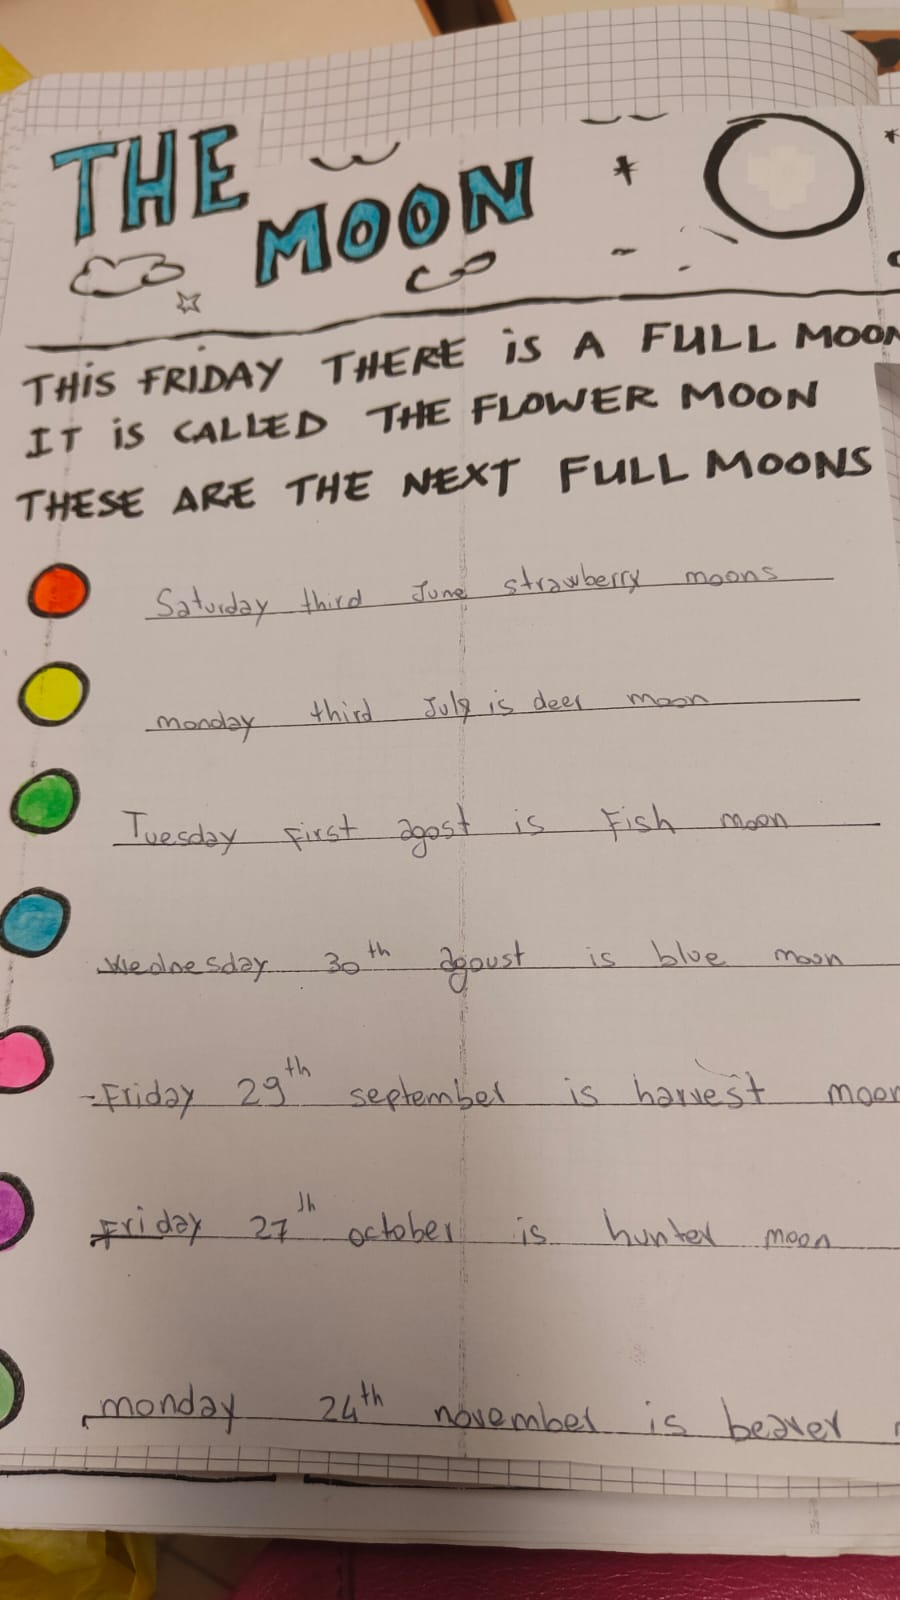 THE
MOON
THIS FRIDAY THERE iS A FULL MOON
IT iS CALLED THE FLOWER MOON
THESE ARE THE NEXT FULL MOONS
Saturday third June strawberry moons
monday third July is deer moon
Tuesday First agost is Fish moon
Wednesday 30th agoust is blue moon
-Friday 29th september is harvest moon
Friday 27th october is hunter moon
monday 24th november is beaver